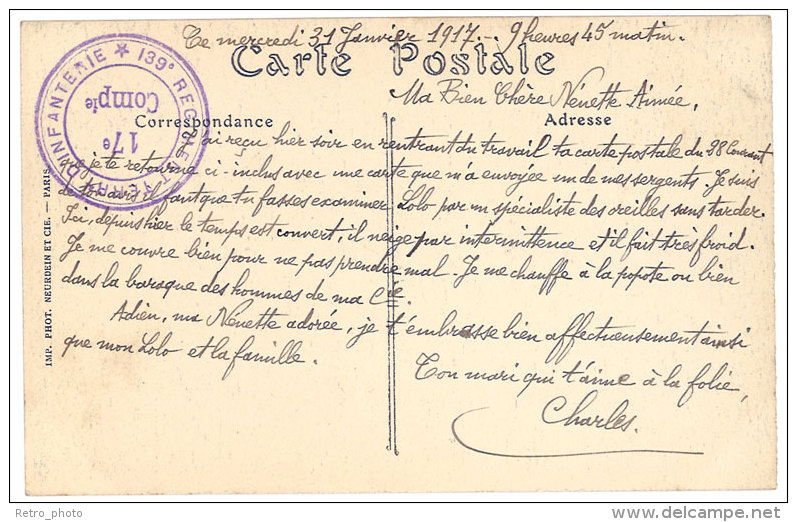 Ce mercredi 31 Janvier 1917 - 9 heures 45 matin.
Carte Postale
Ma Bien Chère Nénette Aimée,
Correspondance
Adresse
J'ai reçu hier soir en rentrant du travail ta carte postale du 28 Courant
que je te retourne ci-inclus avec une carte que m'a envoyée un de mes sergents. Je suis
de ton avis il faut que tu fasses examiner Lolo par un spécialiste des oreilles sans tarder.
Ici, depuis hier le temps est couvert, il neige par intermittence et il fait très froid.
Je me couvre bien pour ne pas prendre mal. Je me chauffe à la popote ou bien
dans la baraque des hommes de ma Cie.
Adieu, ma Nénette adorée, je t'embrasse bien affectueusement ainsi
que mon Lolo et la famille.
Ton mari qui t'aime à la folie,
Charles.
139e REGIMENT D'INFANTERIE
17e
Compie
IMP. PHOT. NEURDEIN ET CIE. — PARIS
Retro_photo
delcampe.net